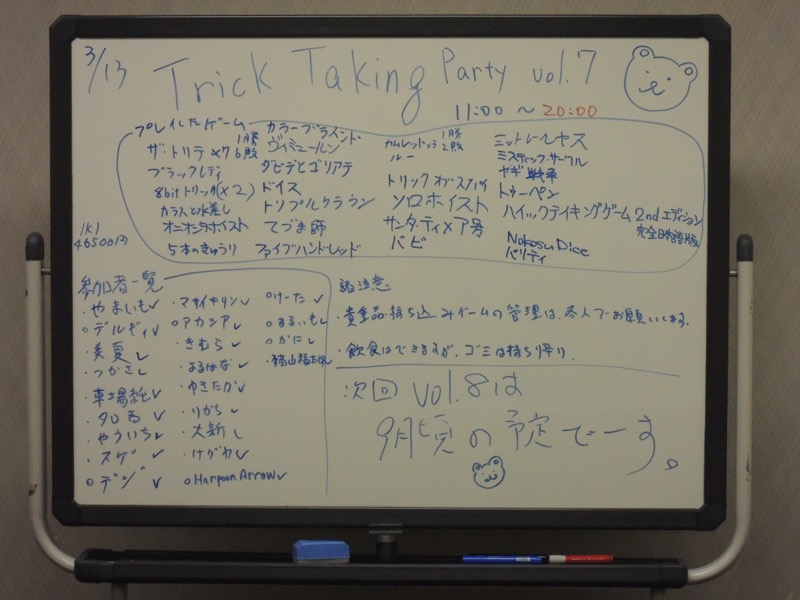 3/13
Trick Taking Party vol.7
11:00 ~ 20:00
プレイしたゲーム
ザ・トリテ×7 1勝6敗
ブラックレディ
8bitトリック(×2)
カラスと水差し
オニオンタホイスト
5本のきゅうり
カラーブラインド
ヴィミュールン
ダビデとゴリアテ
ドイス
トリプルクラウン
てづま師
ファイブハンドレッド
カムレットっ 1勝2敗
ルー
トリックオブスパイ
ソロホイスト
サンダ・ティ×ア号
バビ
ミットレールヤス
ミスティックサークル
ヤギ戦争
トゥーペン
ハイックテイキングゲーム 2nd エディション
完全日本語版
Nokosu Dice
バリティ
1k1
46500円
参加者一覧
・やまいも✓
・デルギィ✓
・美夏✓
・つかさ✓
・車場純✓
・タロ芋✓
・やういち✓
・スゲ✓
○デシ✓
・マキイキリン✓
○アカシア✓
・きむら✓
・よるはな✓
・ゆきたか✓
・りから✓
・大新✓
・けがわ✓
○Harpoon Arrow✓
○けーた✓
○まるいも✓
○かに✓
諸注意
・貴重品・持ち込みゲームの管理は、各人でお願いします。
・飲食はできますが、ゴミは持ち帰り.
次回 vol.8は
9月頃の予定でーす。